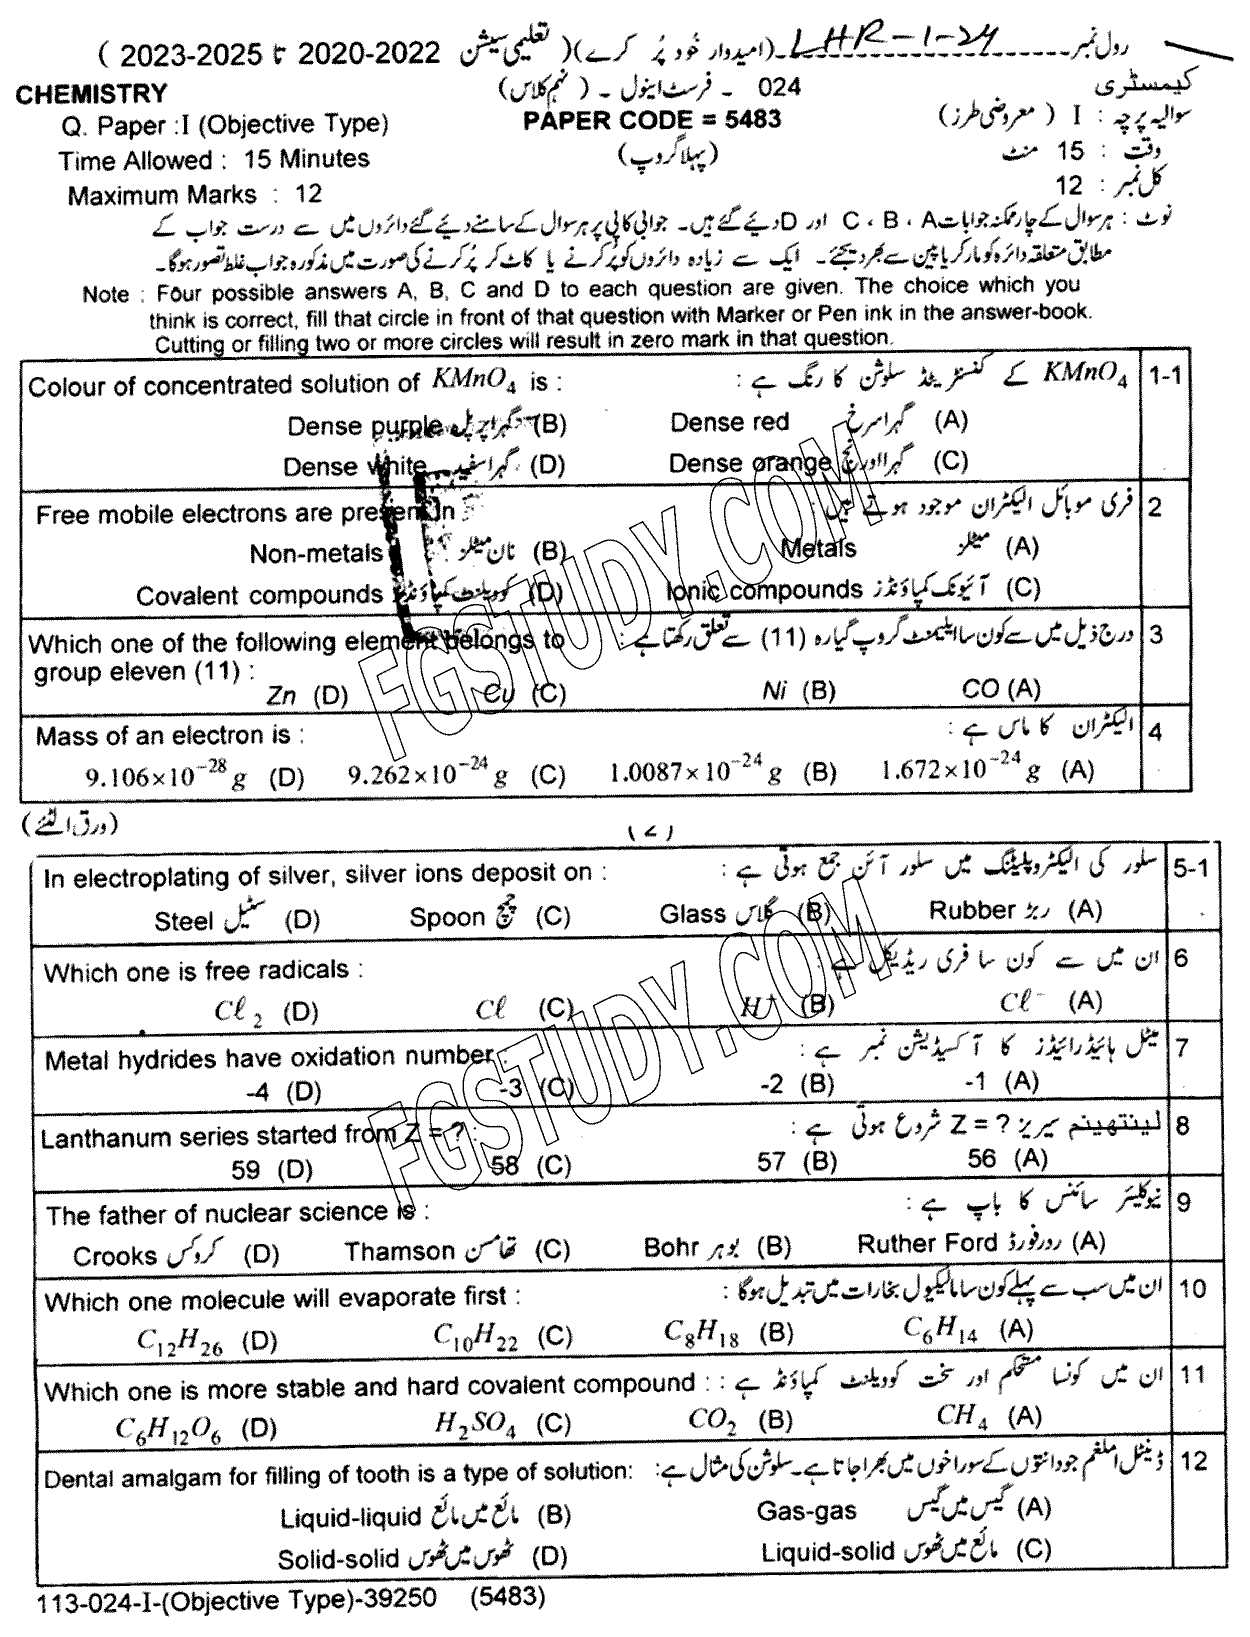 رول نمبر LHR-1-24 (امیدوار خود پُر کرے) ( تعلیمی سیشن 2020-2022 تا 2023-2025 )
CHEMISTRY 024 - فرسٹ اینول - ( نہم کلاس) کیمسٹری
Q. Paper :I (Objective Type) PAPER CODE = 5483 سوالیہ پرچہ : I ( معروضی طرز)
Time Allowed : 15 Minutes (پہلا گروپ) وقت : 15 منٹ
Maximum Marks : 12 کل نمبر : 12
نوٹ : ہر سوال کے چار ممکنہ جوابات A ، B ، C اور D دیے گئے ہیں۔ جوابی کاپی پر ہر سوال کے سامنے دیے گئے دائروں میں سے درست جواب کے
مطابق متعلقہ دائرہ کو مارکر یا پین سے بھر دیجئے۔ ایک سے زیادہ دائروں کو پُر کرنے یا کاٹ کر پُر کرنے کی صورت میں مذکورہ جواب غلط تصور ہوگا۔
Note : Four possible answers A, B, C and D to each question are given. The choice which you
think is correct, fill that circle in front of that question with Marker or Pen ink in the answer-book.
Cutting or filling two or more circles will result in zero mark in that question.
Colour of concentrated solution of KMnO₄ is : KMnO₄ کے کنسنٹریٹڈ سلوشن کا رنگ ہے : 1-1
Dense purple گہرا پرپل (B) Dense red گہرا سرخ (A)
Dense white گہرا سفید (D) Dense orange گہرا اورنج (C)
Free mobile electrons are present in فری موبائل الیکٹران موجود ہوتے ہیں 2
Non-metals نان میٹلز (B) Metals میٹلز (A)
Covalent compounds کوویلنٹ کمپاؤنڈز (D) Ionic compounds آئیونک کمپاؤنڈز (C)
Which one of the following element belongs to درج ذیل میں سے کون سا ایلیمنٹ گروپ گیارہ (11) سے تعلق رکھتا ہے : 3
group eleven (11) :
Zn (D) Cu (C) Ni (B) CO (A)
Mass of an electron is : الیکٹران کا ماس ہے : 4
9.106×10⁻²⁸ g (D) 9.262×10⁻²⁴ g (C) 1.0087×10⁻²⁴ g (B) 1.672×10⁻²⁴ g (A)
(ورق الٹئے)
(2)
In electroplating of silver, silver ions deposit on : سلور کی الیکٹروپلیٹنگ میں سلور آئن جمع ہوتی ہے : 5-1
Steel سٹیل (D) Spoon چمچ (C) Glass گلاس (B) Rubber ربڑ (A)
Which one is free radicals : ان میں سے کون سا فری ریڈیکل ہے : 6
Cℓ₂ (D) Cℓ (C) H⁺ (B) Cℓ⁻ (A)
Metal hydrides have oxidation number : میٹل ہائیڈرائیڈز کا آکسیڈیشن نمبر ہے : 7
-4 (D) -3 (C) -2 (B) -1 (A)
Lanthanum series started from Z = ? : لینتھینم سیریز Z = ? شروع ہوتی ہے : 8
59 (D) 58 (C) 57 (B) 56 (A)
The father of nuclear science is : نیوکلیئر سائنس کا باپ ہے : 9
Crooks کروکس (D) Thamson تھامسن (C) Bohr بوہر (B) Ruther Ford ردرفورڈ (A)
Which one molecule will evaporate first : ان میں سب سے پہلے کون سا مالیکیول بخارات میں تبدیل ہوگا : 10
C₁₂H₂₆ (D) C₁₀H₂₂ (C) C₈H₁₈ (B) C₆H₁₄ (A)
Which one is more stable and hard covalent compound : : ان میں کونسا مستحکم اور سخت کوویلنٹ کمپاؤنڈ ہے : 11
C₆H₁₂O₆ (D) H₂SO₄ (C) CO₂ (B) CH₄ (A)
Dental amalgam for filling of tooth is a type of solution: ڈینٹل املغم جو دانتوں کے سوراخوں میں بھرا جاتا ہے۔ سلوشن کی مثال ہے: 12
Liquid-liquid مائع میں مائع (B) Gas-gas گیس میں گیس (A)
Solid-solid ٹھوس میں ٹھوس (D) Liquid-solid مائع میں ٹھوس (C)
113-024-I-(Objective Type)-39250 (5483)
FGSTUDY.COM
FGSTUDY.COM